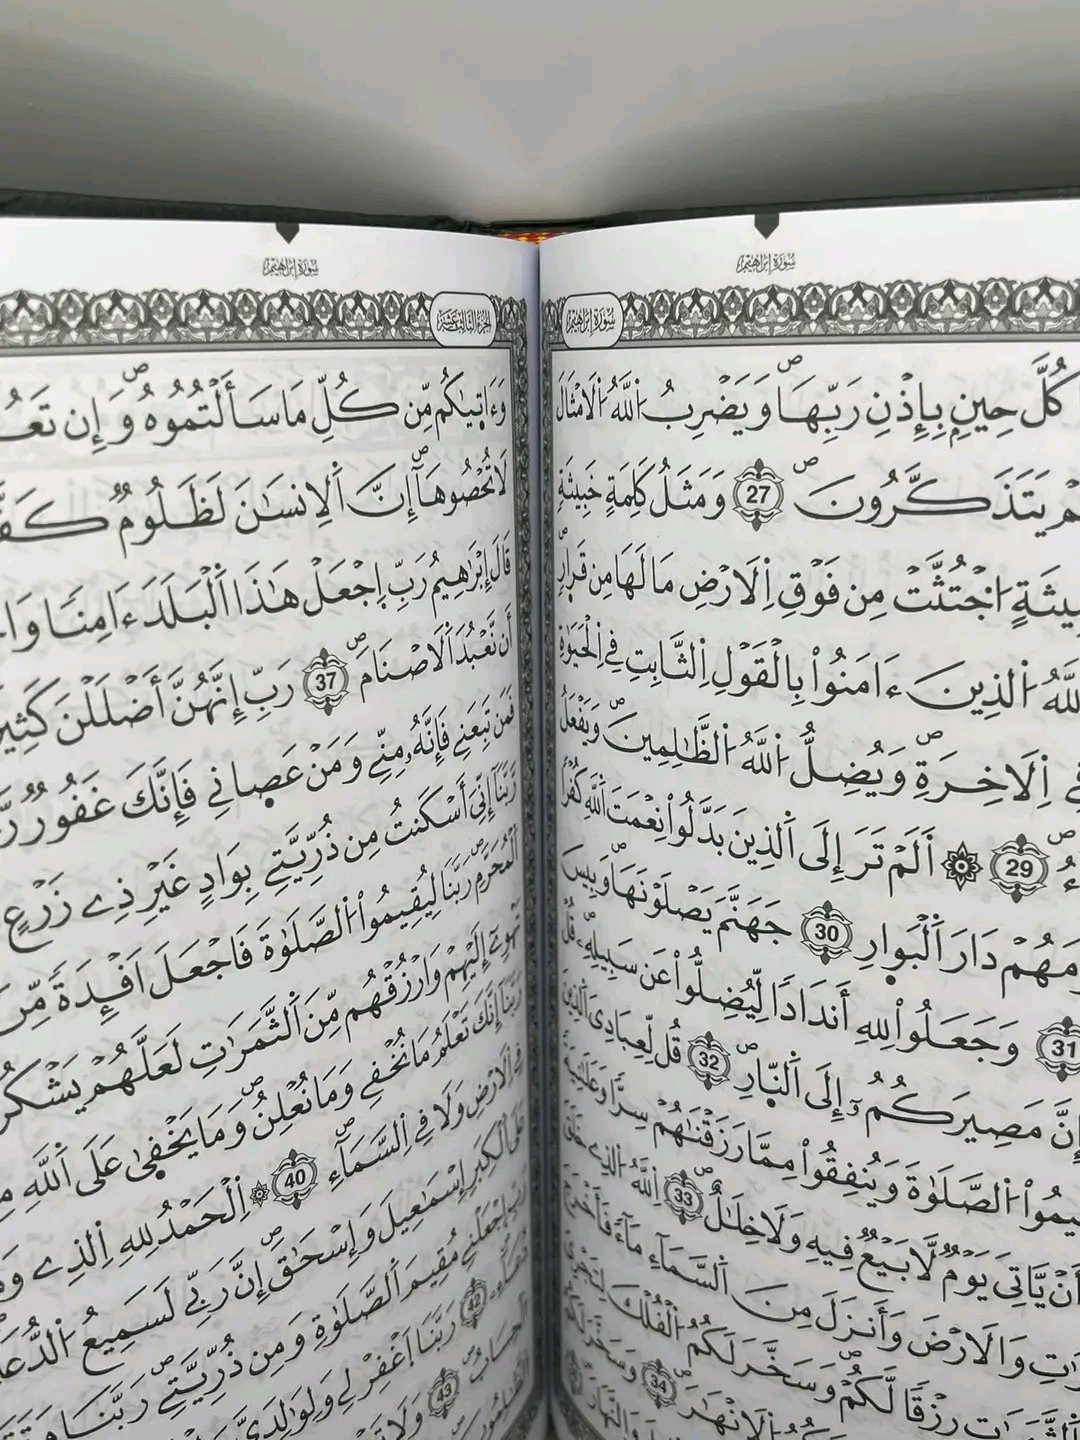 سورة إبراهيم
سورة إبراهيم
كُلَّ حِينٍ بِإِذْنِ رَبِّهَا ۖ وَيَضْرِبُ اللَّهُ الَامْثَالَ
يَتَذَكَّرُونَ ۖ 27 وَمَثَلُ كَلِمَةٍ خَبِيثَةٍ
اجْتُثَّتْ مِن فَوْقِ اِلَارْضِ مَا لَهَا مِن قَرِارٍ
اللَّهُ الذِينَ ءَامَنُواْ بِالْقَوْلِ اِلثَّابِتِ فِي اِلْحَيَوٰةِ
اِلَاخِرَةِ ۖ وَيُضِلُّ اللَّهُ الظَّٰلِمِينَ ۖ وَيَفْعَلُ
29 أَلَمْ تَرَ إِلَى اَلذِينَ بَدَّلُواْ نِعْمَتَ اَللَّهِ كُفْراً
دَارَ اَلْبَوِارِ 30 جَهَنَّمَ يَصْلَوْنَهَا ۖ وَبِيسَ
31 وَجَعَلُواْ لِلهِ أَندَادًا لِّيُضِلُّواْ عَن سَبِيلِهِۦ ۖ قُلْ
مَصِيرَكُمُۥٓ إِلَى اَلنّ۪ارِ ۖ 32 قُل لِّعِبَادِىَ اَلذِينَ
الصَّلَوٰةَ وَيُنفِقُواْ مِمَّا رَزَقْنَٰهُمْ سِرّاً وَعَلَٰنِيَةً
أَنْ يَّاتِىَ يَوْمٌ لَّا بَيْعٌ فِيهِ وَلَا خِلَٰلٌ ۖ 33 اِللَّهُ الذِے خَلَقَ
وَالَارْضَ وَأَنزَلَ مِنَ اَلسَّمَآءِ مَآءً فَأَخْرَجَ
رِزْقًا لَّكُمْ ۖ وَسَخَّرَ لَكُمُ الْفُلْكَ لِتَجْرِىَ
الَانْهَٰرَ ۖ 34 وَسَخَّرَ لَكُمُ
سورة إبراهيم
الجزء الثالث عشر
وَءَاتٜيٰكُم مِّن كُلِّ مَا سَأَلْتُمُوهُ ۖ وَإِن
لَا تُحْصُوهَآ ۖ إِنَّ اَلِانسَٰنَ لَظَلُومٌ
قَالَ إِبْرَٰهِيمُ رَبِّ اِجْعَلْ هَٰذَا اَلْبَلَدَ ءَامِنًا
أَن نَّعْبُدَ اَلَاصْنَامَ ۖ 37 رَبِّ إِنَّهُنَّ أَضْلَلْنَ
فَمَن تَبِعَنِي فَإِنَّهُۥ مِنِّي وَمَنْ عَصٜانِي فَإِنَّكَ غَفُورٌ
رَّبَّنَآ إِنِّيَ أَسْكَنتُ مِن ذُرِّيَّتِي بِوَادٍ غَيْرِ ذِے زَرْعٍ
اَلْمُحَرَّمِ رَبَّنَا لِيُقِيمُواْ الصَّلَوٰةَ فَاجْعَلَ اَفْـِٕدَةً مِّنَ
تَهْوِےٓ إِلَيْهِمْ وَارْزُقْهُم مِّنَ اَلثَّمَرَٰتِ لَعَلَّهُمْ
رَبَّنَآ إِنَّكَ تَعْلَمُ مَا نُخْفِي وَمَا نُعْلِنُ ۖ وَمَا يَخْفٜىٰ عَلَى اَللَّهِ
فِي اِلَارْضِ وَلَا فِي اِلسَّمَآءِ ۖ 40 اِلْحَمْدُ لِلهِ اِلذِے
عَلَى اَلْكِبَرِ إِسْمَٰعِيلَ وَإِسْحَٰقَ ۖ إِنَّ رَبِّي لَسَمِيعُ الدُّعَآءِ
رَبِّ اِجْعَلْنِي مُقِيمَ اَلصَّلَوٰةِ وَمِن ذُرِّيَّتِي ۖ رَبَّنَا
42 رَبَّنَا اَغْفِرْ لِي وَلِوَٰلِدَيَّ
الْحِسَابُ ۖ 43 وَلَا